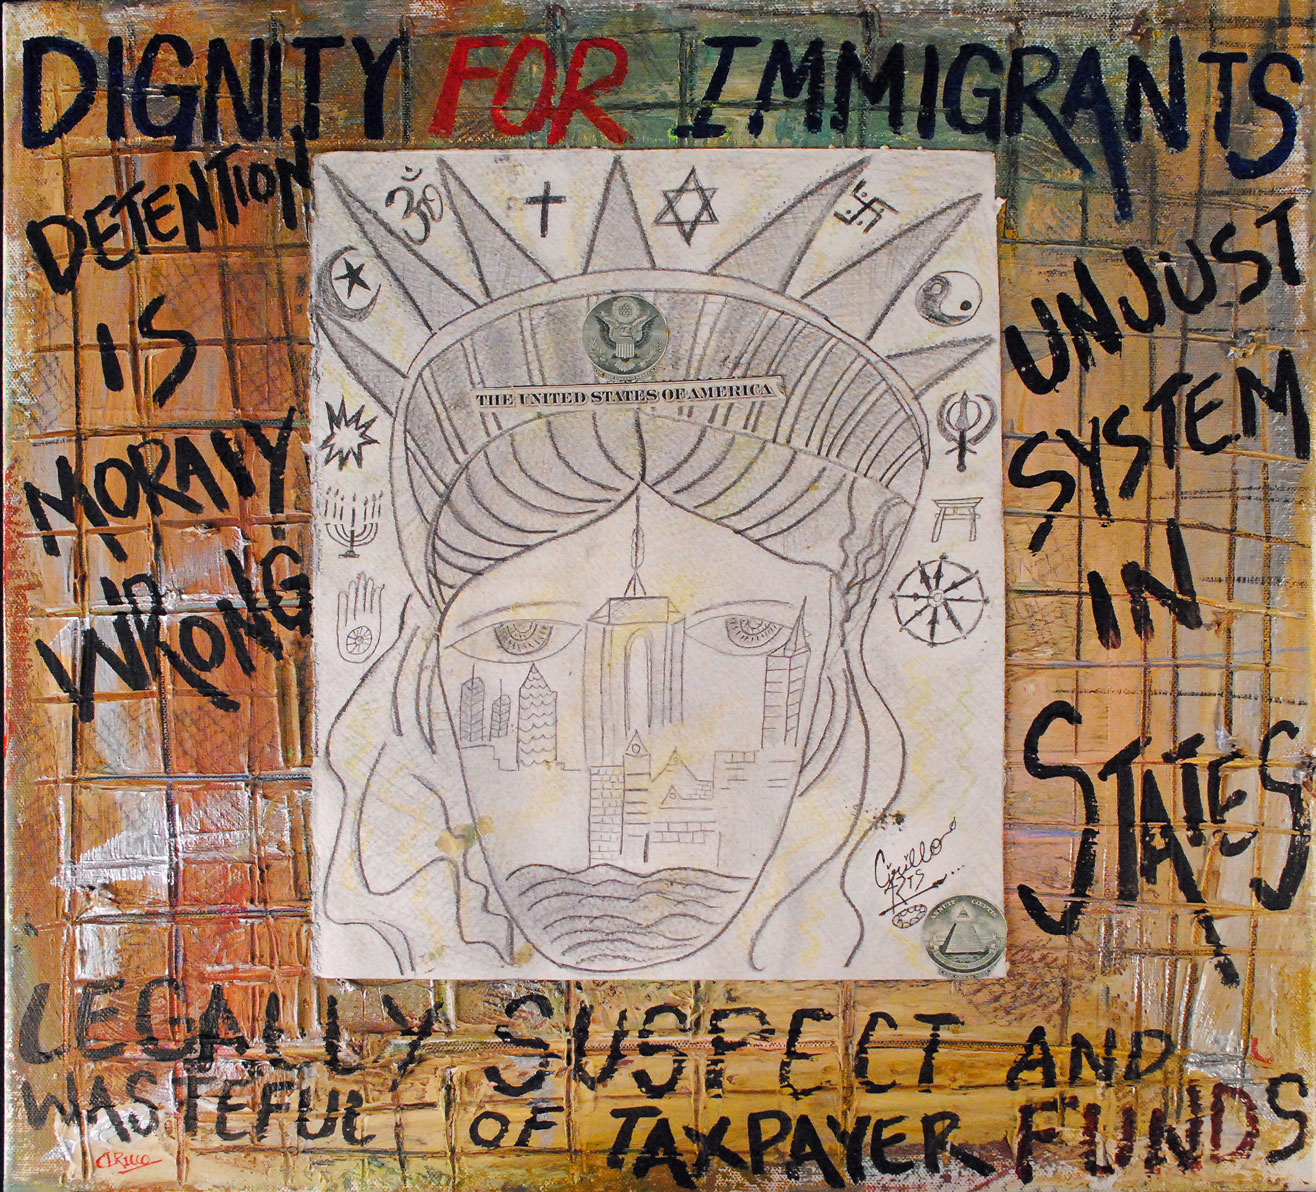 DIGNITY FOR IMMIGRANTS
DETENTION
IS
MORALLY
WRONG
UNJUST
SYSTEM
IN
STATES
ॐ
THE UNITED STATES OF AMERICA
Cirillo
ARTS
ANNUIT CŒPTIS
LEGALLY SUSPECT AND
WASTEFUL OF TAXPAYER FUNDS